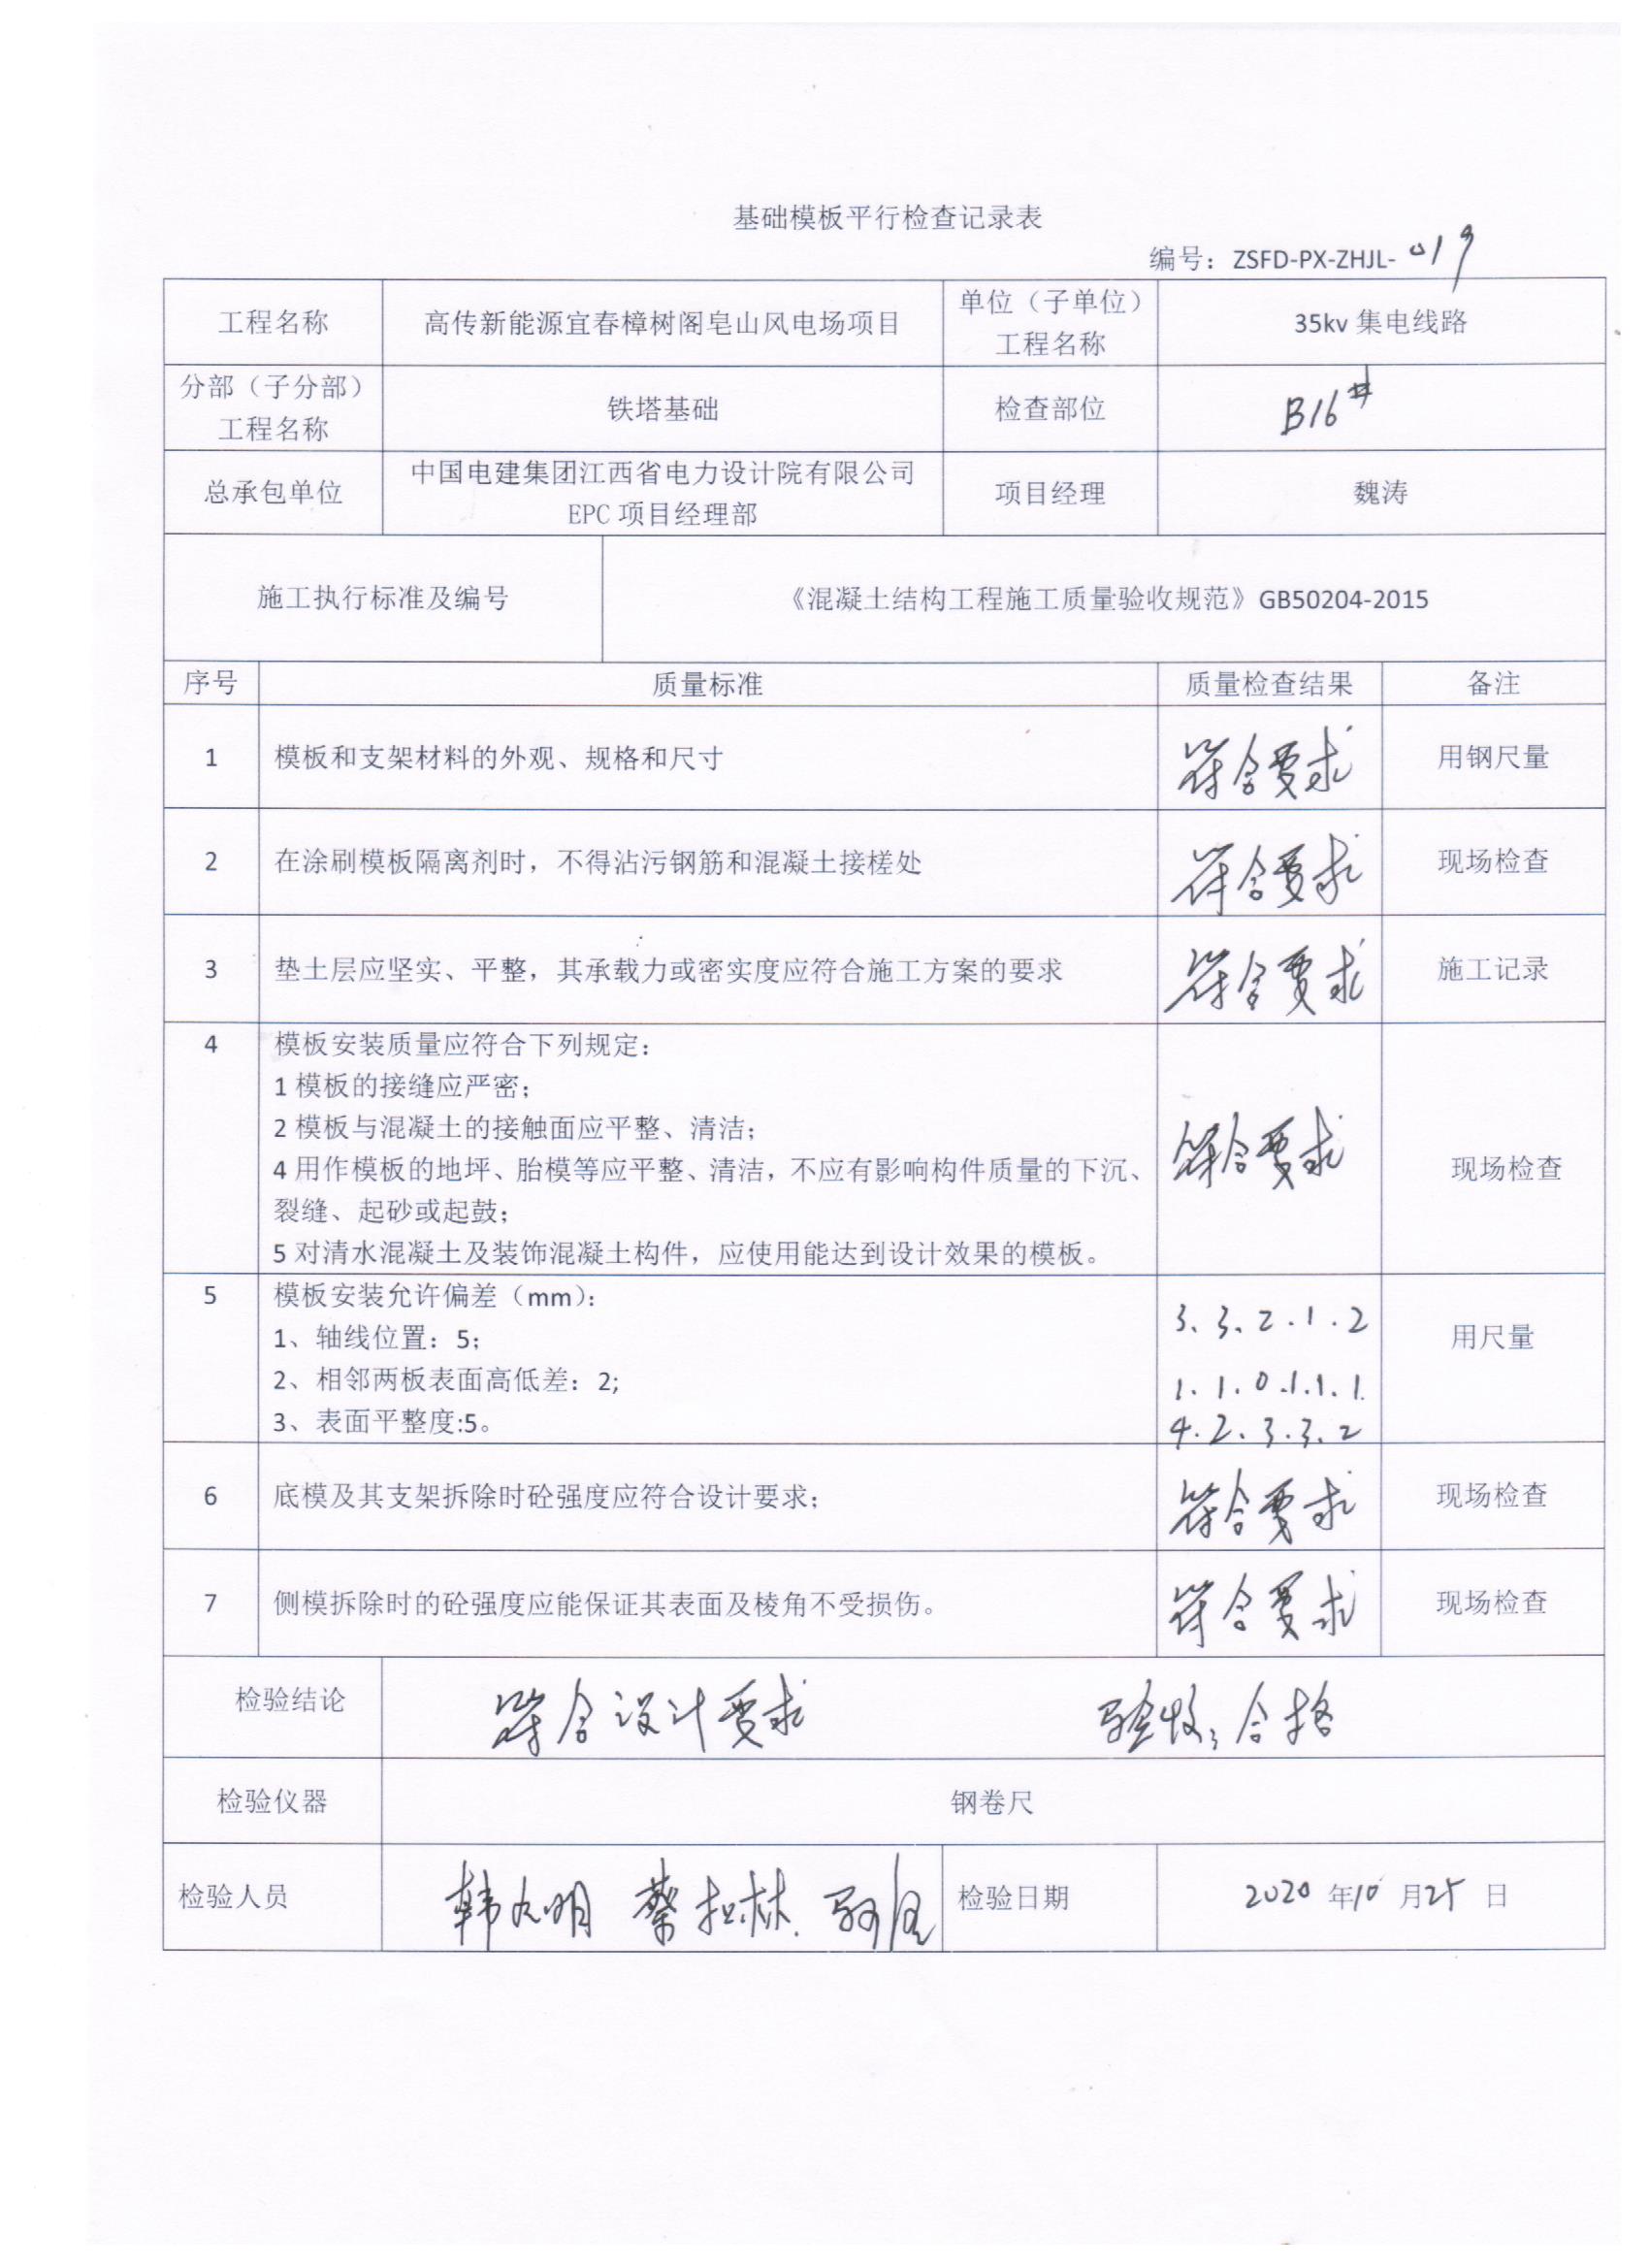 基础模板平行检查记录表
编号：ZSFD-PX-ZHJL-019
工程名称 高传新能源宜春樟树阁皂山风电场项目 单位（子单位）工程名称 35kv 集电线路
分部（子分部）工程名称 铁塔基础 检查部位 B16#
总承包单位 中国电建集团江西省电力设计院有限公司 EPC 项目经理部 项目经理 魏涛
施工执行标准及编号 《混凝土结构工程施工质量验收规范》GB50204-2015
序号 质量标准 质量检查结果 备注
1 模板和支架材料的外观、规格和尺寸 符合要求 用钢尺量
2 在涂刷模板隔离剂时，不得沾污钢筋和混凝土接槎处 符合要求 现场检查
3 垫土层应坚实、平整，其承载力或密实度应符合施工方案的要求 符合要求 施工记录
4 模板安装质量应符合下列规定：
1 模板的接缝应严密；
2 模板与混凝土的接触面应平整、清洁；
4 用作模板的地坪、胎模等应平整、清洁，不应有影响构件质量的下沉、 符合要求 现场检查
裂缝、起砂或起鼓；
5 对清水混凝土及装饰混凝土构件，应使用能达到设计效果的模板。
5 模板安装允许偏差（mm）：
1、轴线位置：5； 3、3、2.1.2 用尺量
2、相邻两板表面高低差：2; 1.1.0.1.1.1.
3、表面平整度:5。 4.2、3.3.2
6 底模及其支架拆除时砼强度应符合设计要求； 符合要求 现场检查
7 侧模拆除时的砼强度应能保证其表面及棱角不受损伤。 符合要求 现场检查
检验结论 符合设计要求 验收：合格
检验仪器 钢卷尺
检验人员 检验日期 2020 年 10 月 25 日